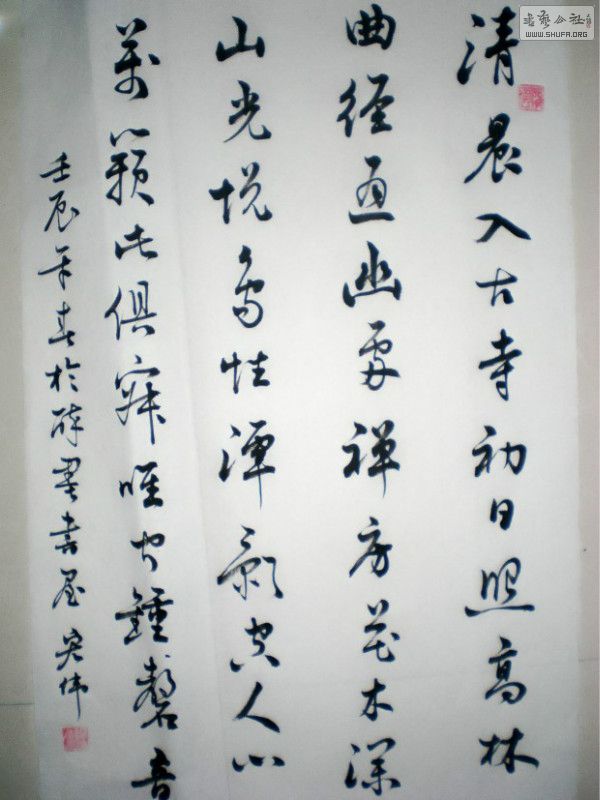 清晨入古寺初日照高林
曲徑通幽處禪房花木深
山光悦鳥性潭影空人心
萬籟此俱寂唯聞鍾磬音
壬辰年春於醉墨書屋 宏偉
書藝公社
WWW.SHUFA.ORG